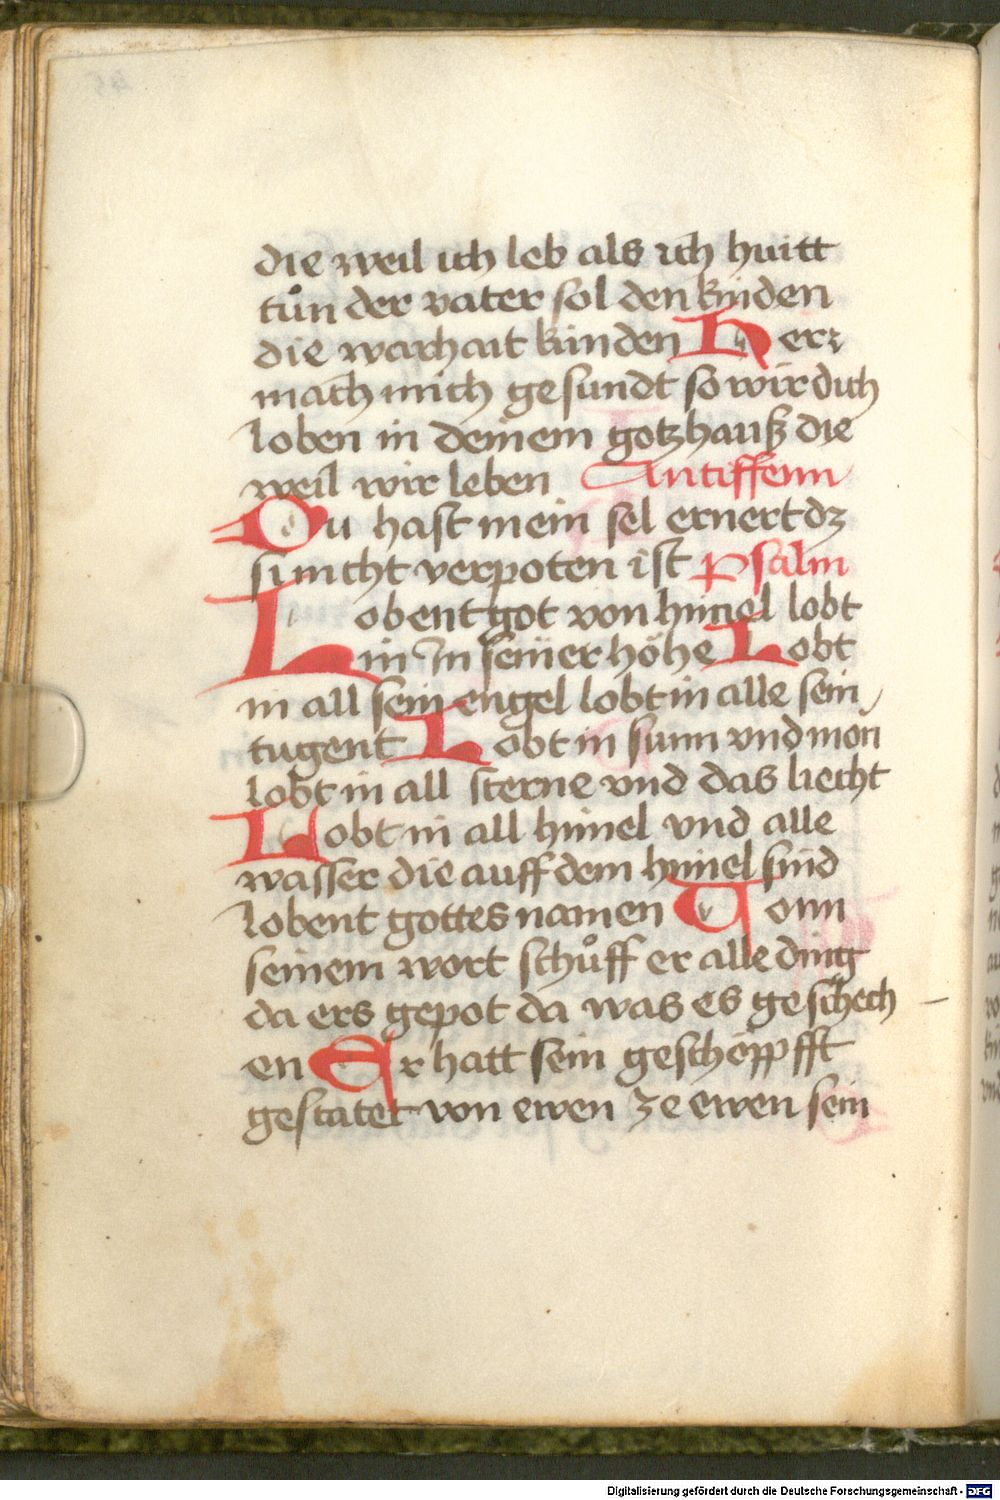 die weil ich leb als ich huitt
tůn der vater sol den kinden
die warhait künden Herꝛ
mach mich gesundt so wir dich
loben in deinem gotzhauß die
weil wir leben Antiffenn
Du hast mein sel ernert dz
si nicht verpoten ist Psalm
Lobent got von himel lobt
in In seiner höhe Lobt
in all sein engel lobt in alle sein
tugent Lobt in sunn vnd mon
lobt in all sterne vnd das liecht
Lobt in all himel vnd alle
wasser die auff dem himel sind
lobent gottes namen Vonn
seinem wort schůff er alle ding
da ers gepot da was es geschech
en Er hatt sein geschöppfft
gestätet von ewen ze ewen sein
Digitalisierung gefördert durch die Deutsche Forschungsgemeinschaft - DFG